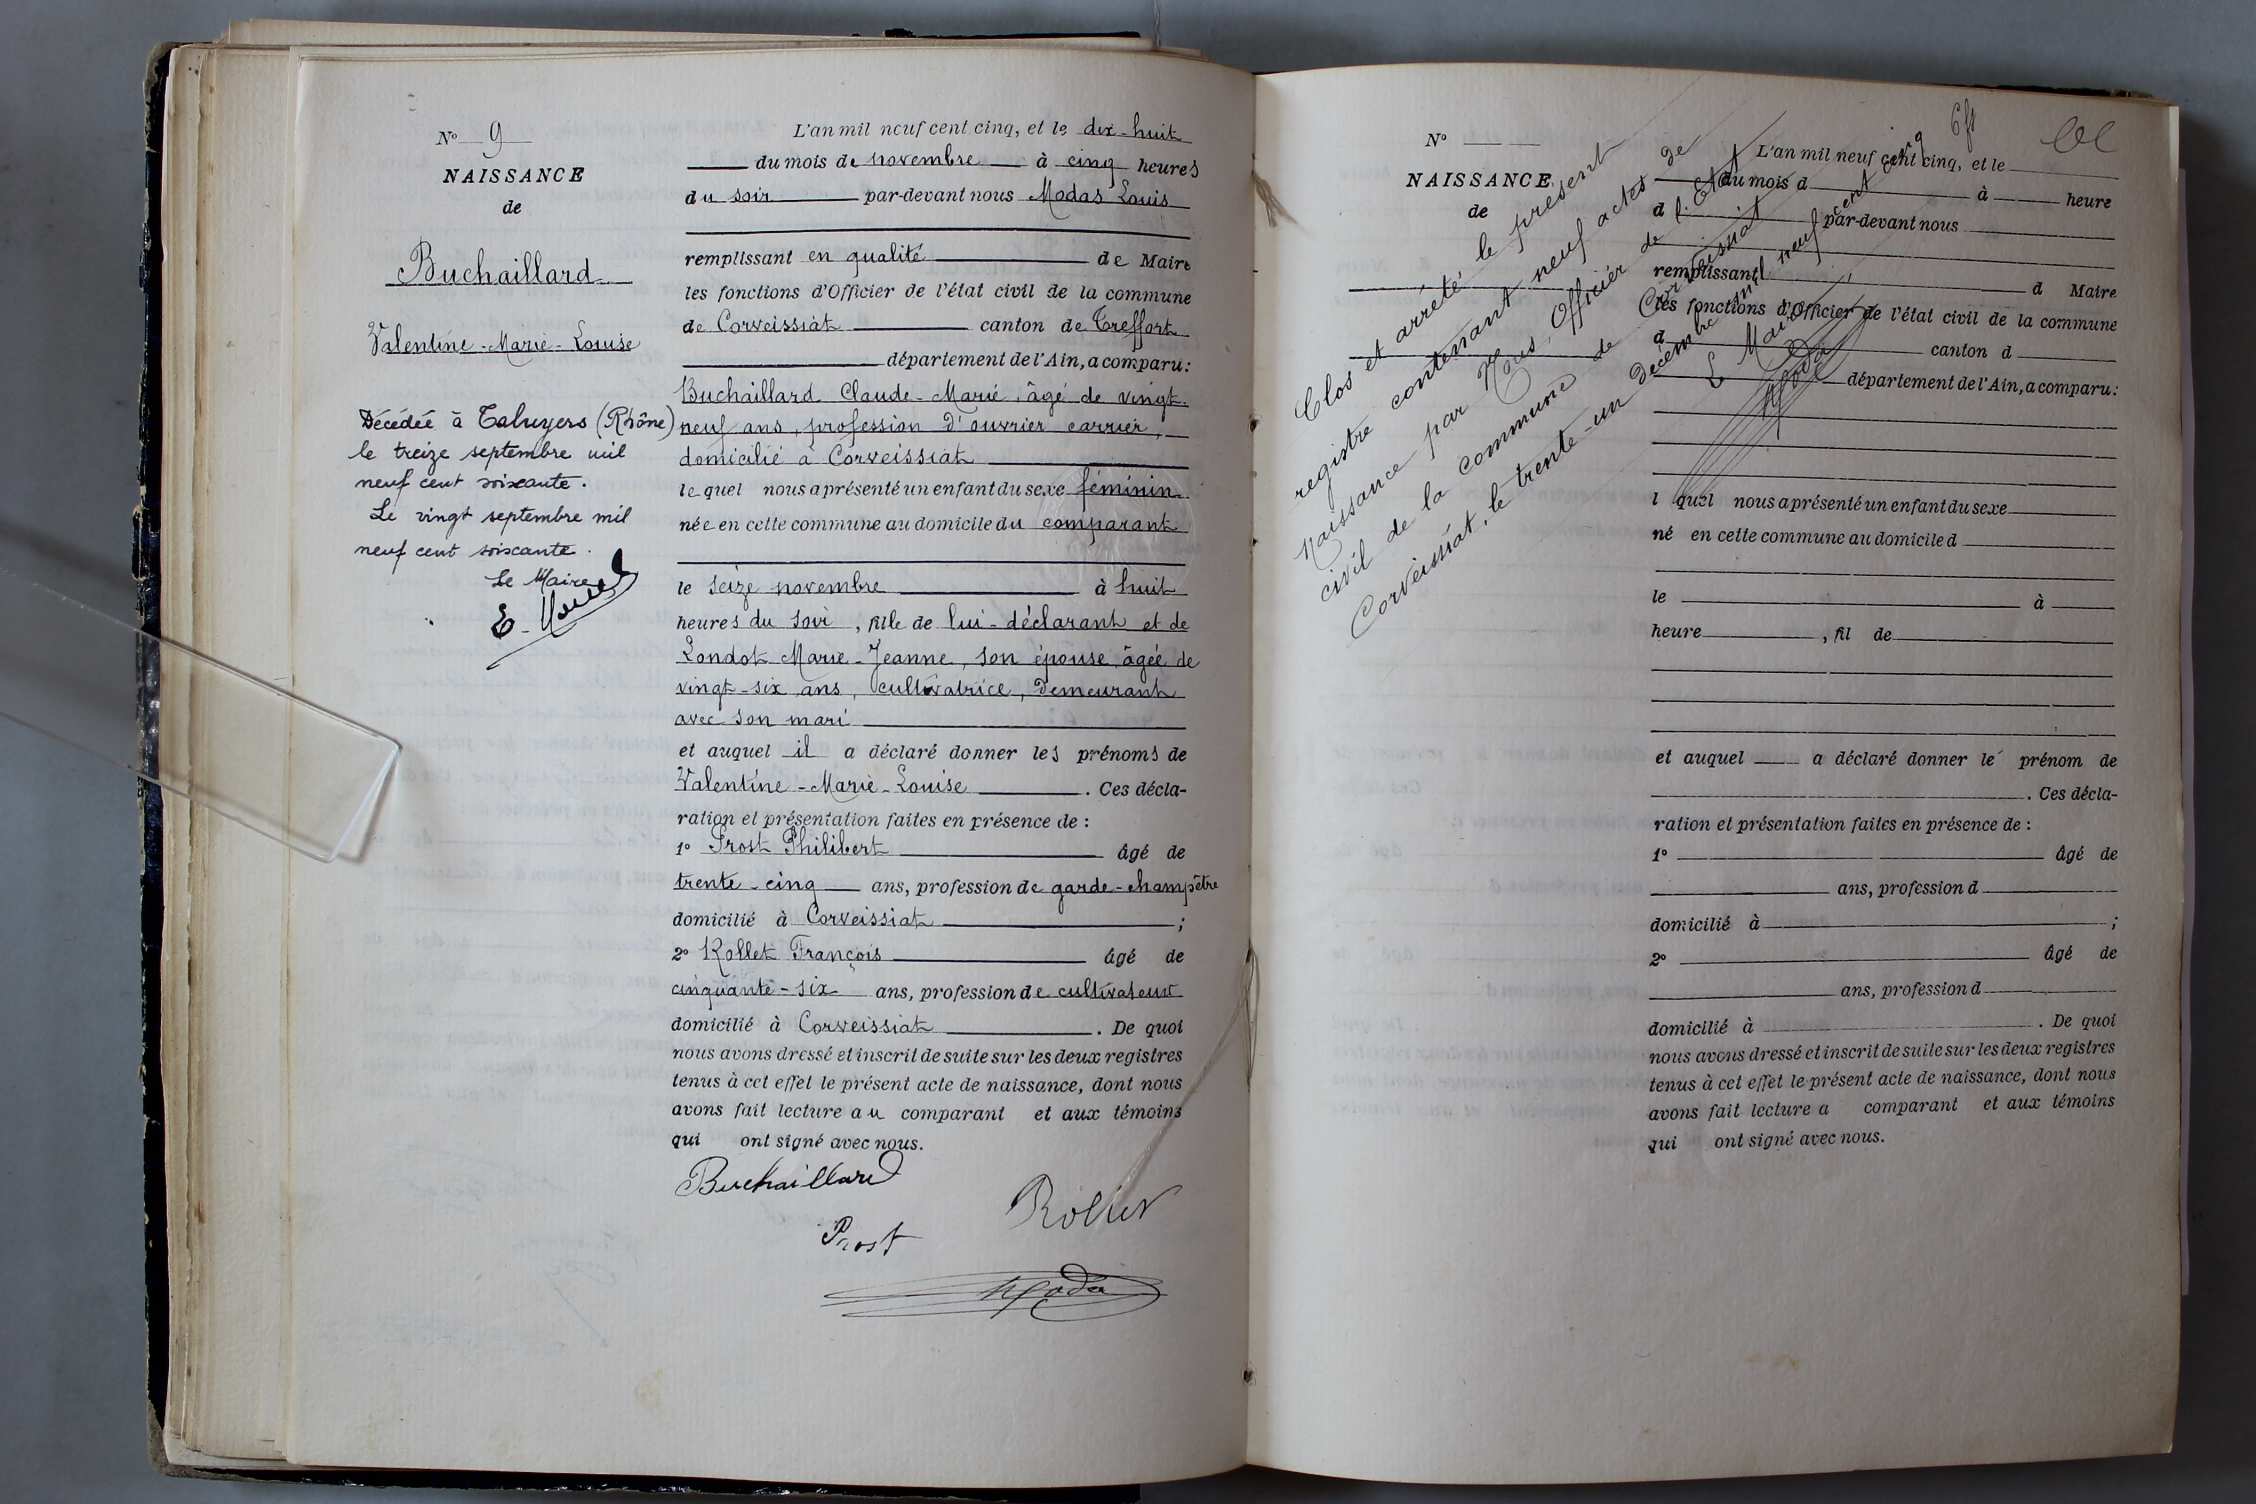 N° 9
NAISSANCE
de
Buchaillard
Valentine-Marie-Louise
Décédée à Taluyers (Rhône)
le treize septembre mil
neuf cent soixante.
Le vingt septembre mil
neuf cent soixante.
Le Maire
L'an mil neuf cent cinq, et le dix-huit
du mois de novembre à cinq heures
du soir par-devant nous Modas Louis
remplissant en qualité de Maire
les fonctions d'Officier de l'état civil de la commune
de Corveissiat canton de Treffort
département de l'Ain, a comparu:
Buchaillard Claude-Marie, âgé de vingt-
neuf ans, profession d'ouvrier carrier,
domicilié à Corveissiat
lequel nous a présenté un enfant du sexe féminin
née en cette commune au domicile du comparant
le seize novembre à huit
heures du soir, fille de lui-déclarant et de
Londot Marie-Jeanne, son épouse âgée de
vingt-six ans, cultivatrice, demeurant
avec son mari
et auquel il a déclaré donner les prénoms de
Valentine-Marie-Louise. Ces décla-
ration et présentation faites en présence de :
1° Prost Philibert âgé de
trente-cinq ans, profession de garde-champêtre
domicilié à Corveissiat ;
2° Rollet François âgé de
cinquante-six ans, profession de cultivateur
domicilié à Corveissiat. De quoi
nous avons dressé et inscrit de suite sur les deux registres
tenus à cet effet le présent acte de naissance, dont nous
avons fait lecture au comparant et aux témoins
qui ont signé avec nous.
Buchaillard
Rollet
Prost
N°
NAISSANCE
de
Clos et arrêté le présent
registre contenant neuf actes de
Naissance par Nous, Officier de l'Etat
civil de la commune de Corveissiat
Corveissiat, le trente-un Décembre mil neuf cent cinq
Le Maire,
L'an mil neuf cent cinq, et le
du mois d à heure
d par-devant nous
remplissant d Maire
les fonctions d'Officier de l'état civil de la commune
d canton d
département de l'Ain, a comparu:
l quel nous a présenté un enfant du sexe
né en cette commune au domicile d
le à
heure , fil de
et auquel a déclaré donner le prénom de
. Ces décla-
ration et présentation faites en présence de :
1° âgé de
ans, profession d
domicilié à ;
2° âgé de
ans, profession d
domicilié à . De quoi
nous avons dressé et inscrit de suite sur les deux registres
tenus à cet effet le présent acte de naissance, dont nous
avons fait lecture a comparant et aux témoins
qui ont signé avec nous.